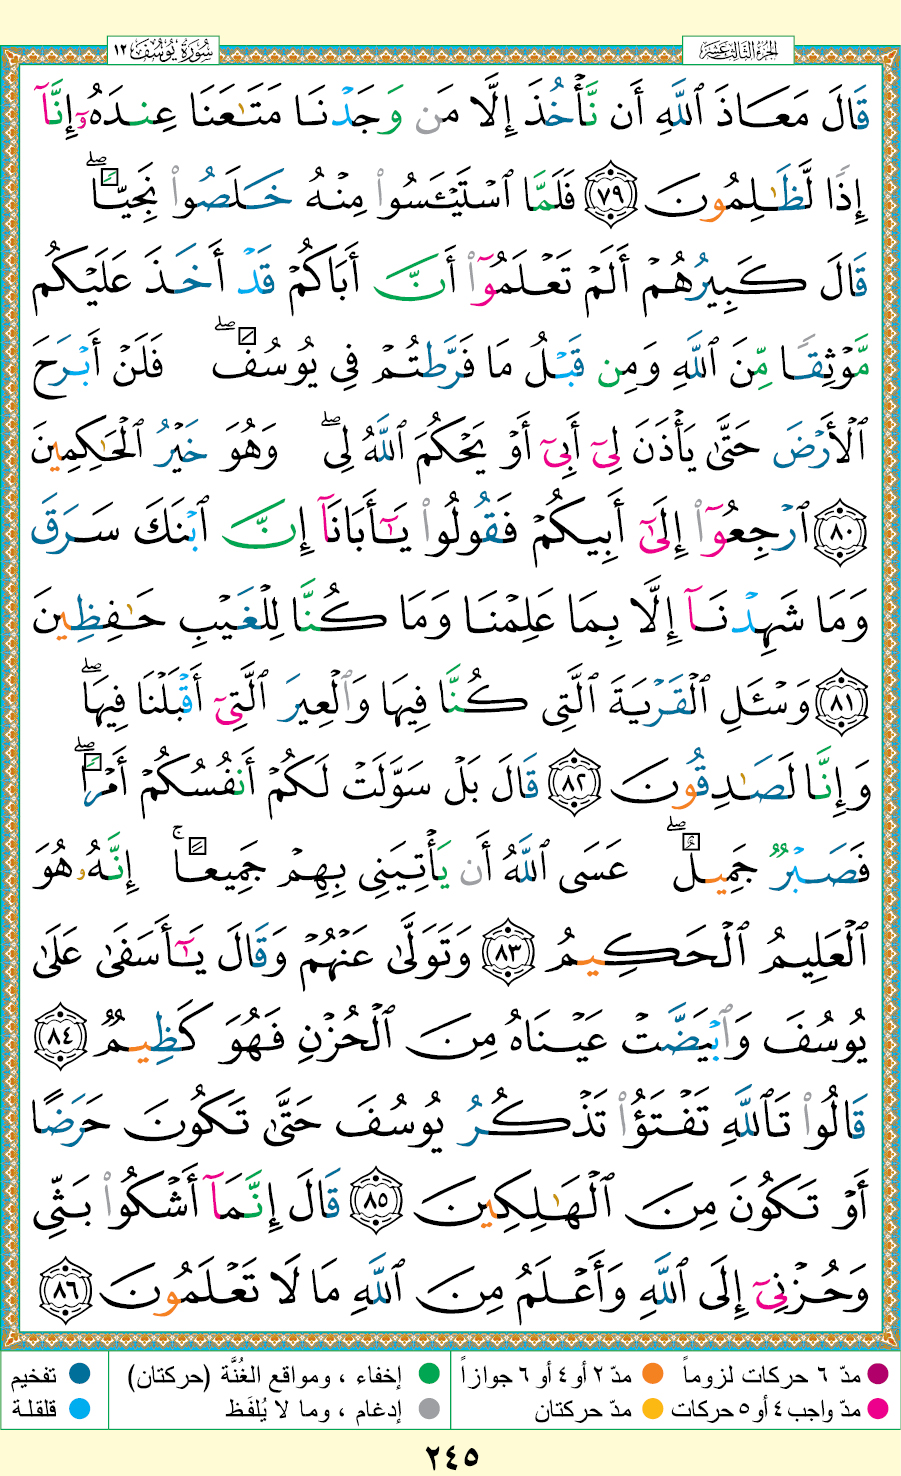 الجزء الثالث عشر
سورة يوسف ١٢
قَالَ مَعَاذَ ٱللَّهِ أَن نَّأْخُذَ إِلَّا مَن وَجَدْنَا مَتَـٰعَنَا عِندَهُۥٓ إِنَّآ
إِذًا لَّظَـٰلِمُونَ ٧٩ فَلَمَّا ٱسْتَيْـَٔسُوا۟ مِنْهُ خَلَصُوا۟ نَجِيًّا ۖ
قَالَ كَبِيرُهُمْ أَلَمْ تَعْلَمُوٓا۟ أَنَّ أَبَاكُمْ قَدْ أَخَذَ عَلَيْكُم
مَّوْثِقًا مِّنَ ٱللَّهِ وَمِن قَبْلُ مَا فَرَّطتُمْ فِى يُوسُفَ ۖ فَلَنْ أَبْرَحَ
ٱلْأَرْضَ حَتَّىٰ يَأْذَنَ لِىٓ أَبِىٓ أَوْ يَحْكُمَ ٱللَّهُ لِى ۖ وَهُوَ خَيْرُ ٱلْحَـٰكِمِينَ
٨٠ ٱرْجِعُوٓا۟ إِلَىٰٓ أَبِيكُمْ فَقُولُوا۟ يَـٰٓأَبَانَآ إِنَّ ٱبْنَكَ سَرَقَ
وَمَا شَهِدْنَآ إِلَّا بِمَا عَلِمْنَا وَمَا كُنَّا لِلْغَيْبِ حَـٰفِظِينَ
٨١ وَسْـَٔلِ ٱلْقَرْيَةَ ٱلَّتِى كُنَّا فِيهَا وَٱلْعِيرَ ٱلَّتِىٓ أَقْبَلْنَا فِيهَا ۖ
وَإِنَّا لَصَـٰدِقُونَ ٨٢ قَالَ بَلْ سَوَّلَتْ لَكُمْ أَنفُسُكُمْ أَمْرًا ۖ
فَصَبْرٌ جَمِيلٌ ۖ عَسَى ٱللَّهُ أَن يَأْتِيَنِى بِهِمْ جَمِيعًا ۚ إِنَّهُۥ هُوَ
ٱلْعَلِيمُ ٱلْحَكِيمُ ٨٣ وَتَوَلَّىٰ عَنْهُمْ وَقَالَ يَـٰٓأَسَفَىٰ عَلَىٰ
يُوسُفَ وَٱبْيَضَّتْ عَيْنَاهُ مِنَ ٱلْحُزْنِ فَهُوَ كَظِيمٌ ٨٤
قَالُوا۟ تَٱللَّهِ تَفْتَؤُا۟ تَذْكُرُ يُوسُفَ حَتَّىٰ تَكُونَ حَرَضًا
أَوْ تَكُونَ مِنَ ٱلْهَـٰلِكِينَ ٨٥ قَالَ إِنَّمَآ أَشْكُوا۟ بَثِّى
وَحُزْنِىٓ إِلَى ٱللَّهِ وَأَعْلَمُ مِنَ ٱللَّهِ مَا لَا تَعْلَمُونَ ٨٦
مدّ ٦ حركات لزوماً مدّ ٢ أو ٤ أو ٦ جوازاً إخفاء ، ومواقع الغُنَّة (حركتان) تفخيم
مدّ واجب ٤ أو ٥ حركات مدّ حركتان إدغام ، وما لا يُلفَظ قلقلة
٢٤٥